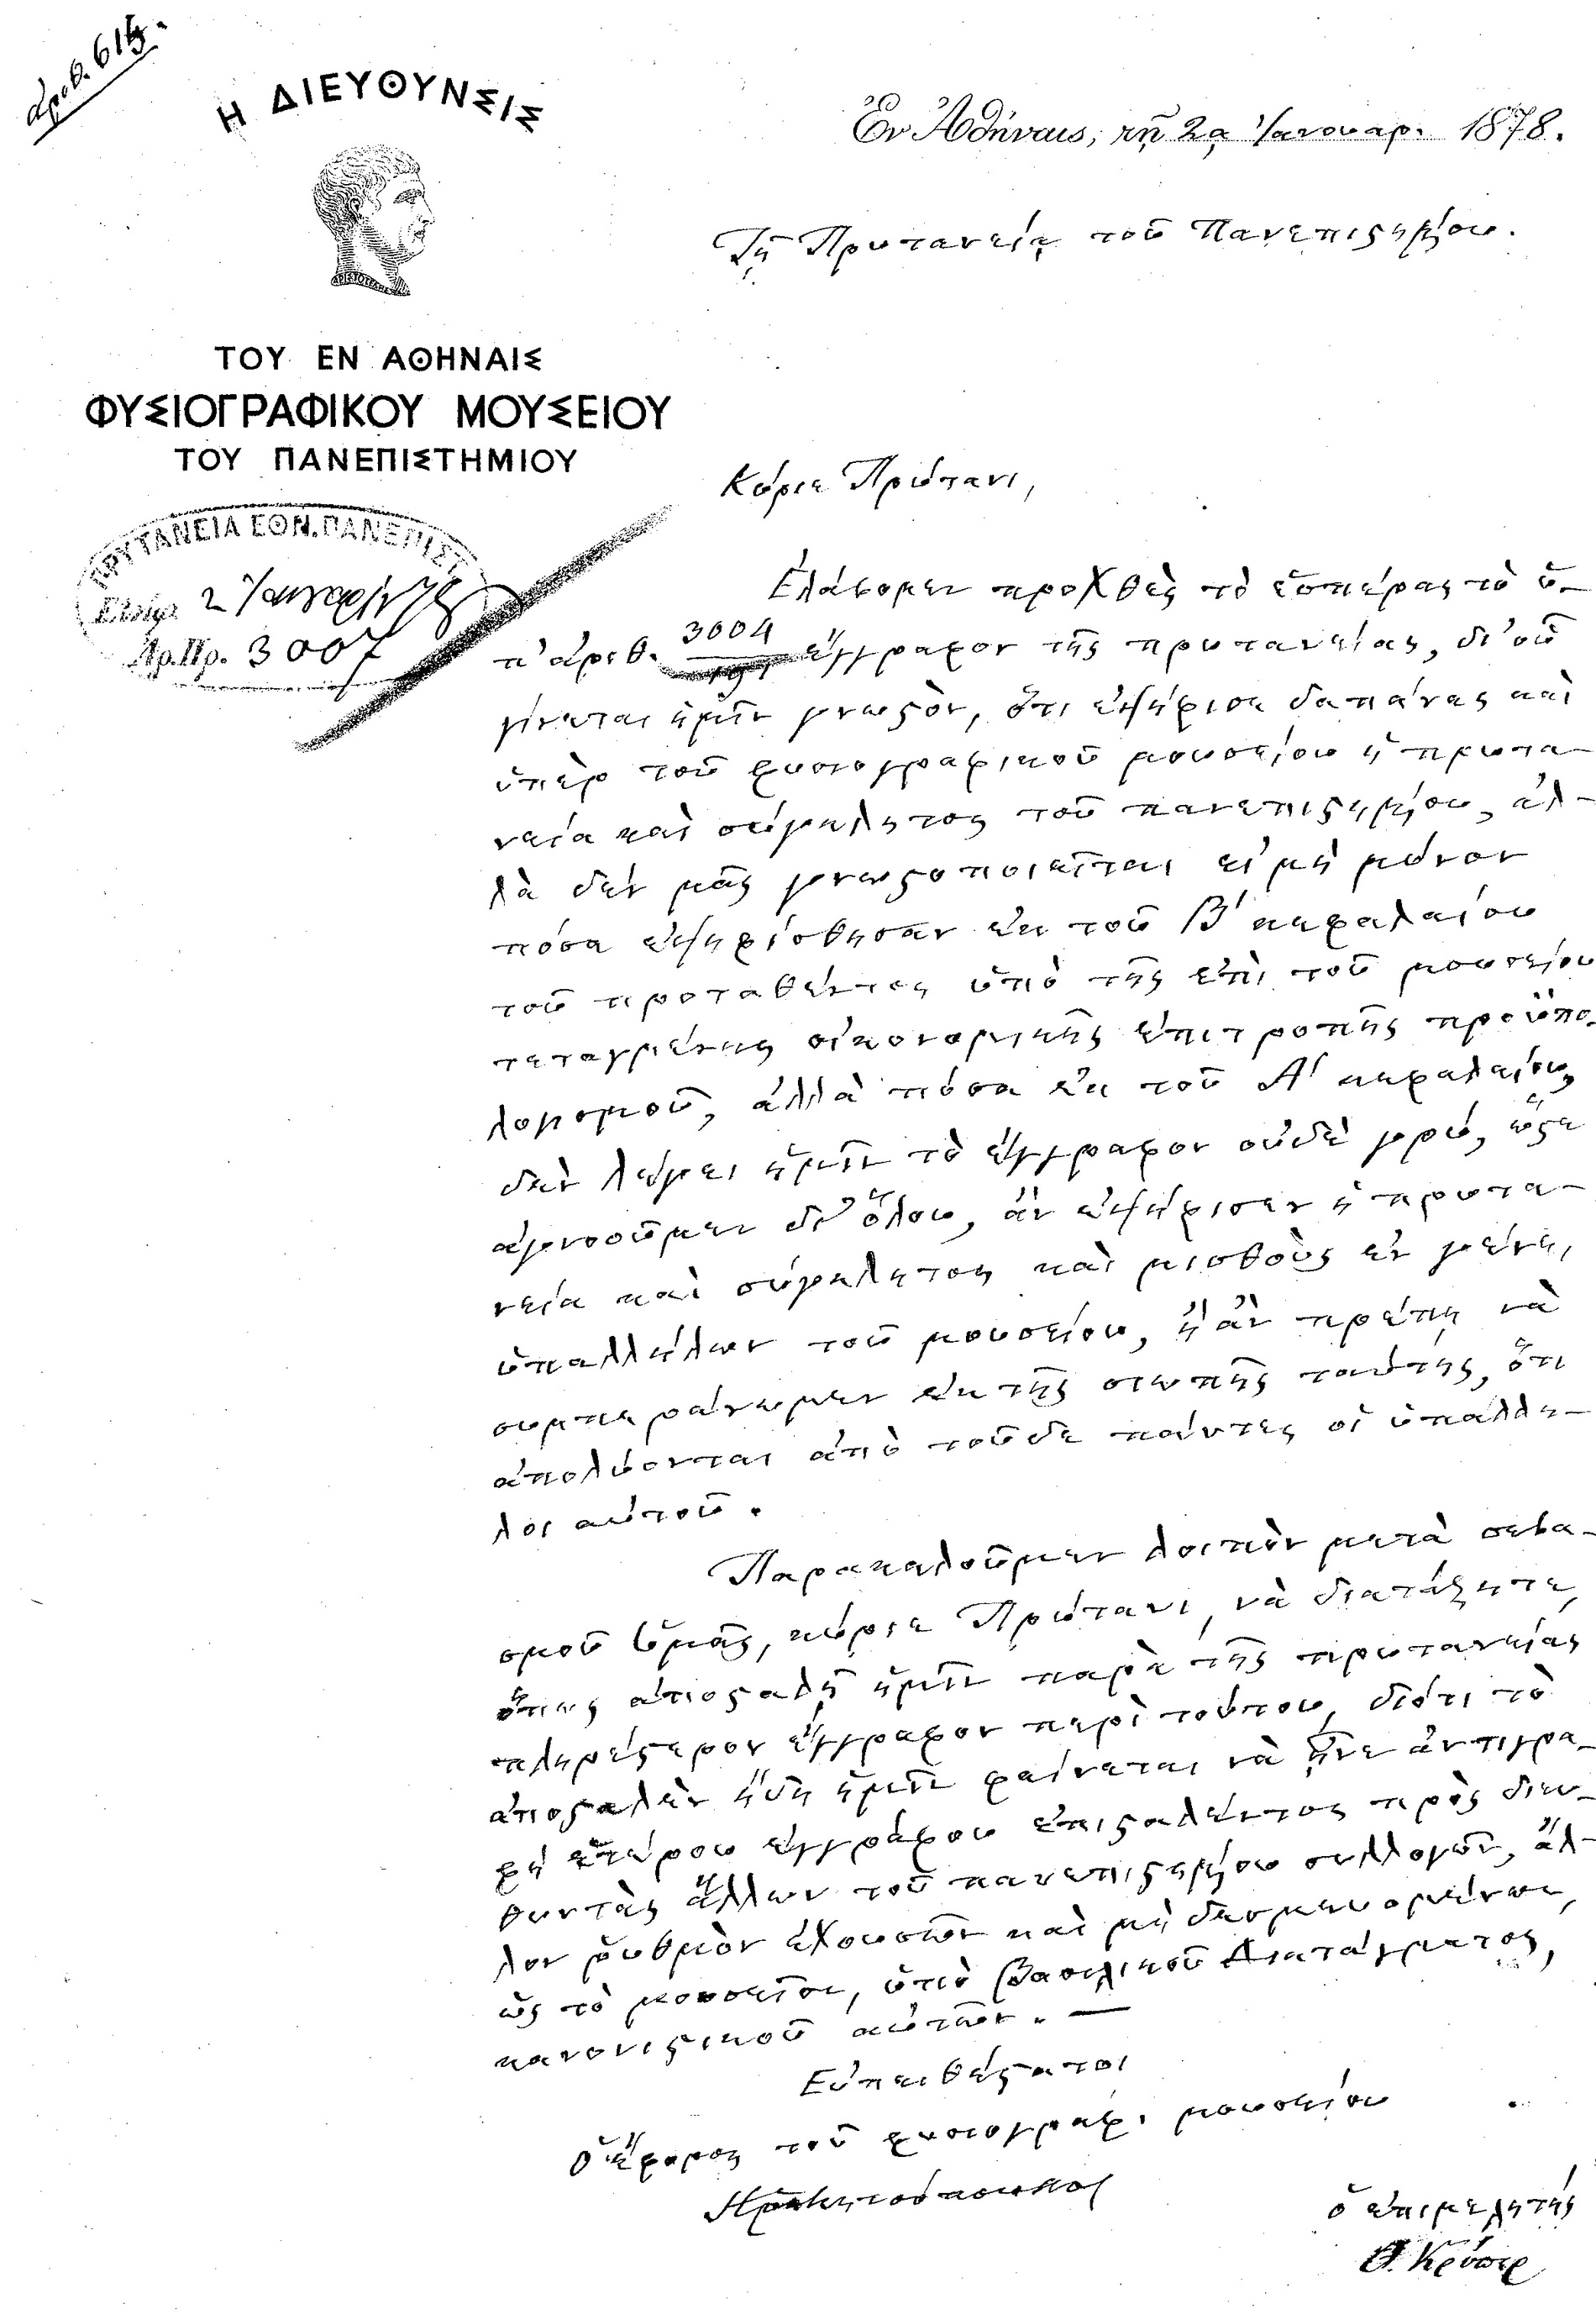 ἀριθ. 614.
Η ΔΙΕΥΘΥΝΣΙΣ
ΑΡΙΣΤΟΤΕΛΗΣ
ΤΟΥ ΕΝ ΑΘΗΝΑΙΣ
ΦΥΣΙΟΓΡΑΦΙΚΟΥ ΜΟΥΣΕΙΟΥ
ΤΟΥ ΠΑΝΕΠΙΣΤΗΜΙΟΥ
Ἐν Ἀθήναις, τῇ 2ᾳ Ἰανουαρ. 1878.
Τῇ Πρυτανείᾳ τοῦ Πανεπιστημίου.
ΠΡΥΤΑΝΕΙΑ ΕΘΝ. ΠΑΝΕΠΙΣΤ
2 Ἰανουαρίου 78
Ἀρ. Πρ. 3007
Κύριε Πρύτανι,
Ἐλάβομεν προχθὲς τὸ ἑσπέρας τὸ ὑ-
π' ἀριθ. 3004 ἔγγραφον τῆς πρυτανείας, δι' οὗ
γίνεται ἡμῖν γνωστὸν, ὅτι ἐψήφισε δαπάνας καὶ
ὑπὲρ τοῦ φυσιογραφικοῦ μουσείου ἡ πρυτα-
νεία καὶ σύγκλητος τοῦ πανεπιστημίου, ἀλ-
λὰ δὲν μᾶς γνωστοποιεῖται εἰμὴ μόνον
πόσα ἐψηφίσθησαν ἐκ τοῦ Β' κεφαλαίου
τοῦ προταθέντος ὑπὸ τῆς ἐπὶ τοῦ μουσείου
τεταγμένης οἰκονομικῆς ἐπιτροπῆς προϋπο-
λογισμοῦ, ἀλλὰ πόσα ἐκ τοῦ Α' κεφαλαίου,
δὲν λέγει ἡμῖν τὸ ἔγγραφον οὐδὲ γρύ, ὥστε
ἀγνοοῦμεν δι' ὅλου, ἂν ἐψήφισεν ἡ πρυτα-
νεία καὶ σύγκλητος καὶ μισθοὺς ἐν γένει
ὑπαλλήλων τοῦ μουσείου, ἢ ἂν πρέπῃ νὰ
συμπεράνωμεν ἐκ τῆς σιωπῆς ταύτης, ὅτι
ἀπολύονται ἀπὸ τοῦδε πάντες οἱ ὑπάλλη-
λοι αὐτοῦ.
Παρακαλοῦμεν λοιπὸν μετὰ σεβα-
σμοῦ ὑμᾶς, κύριε Πρύτανι, νὰ διατάξητε,
ὅπως ἀποσταλῇ ἡμῖν παρὰ τῆς πρυτανείας
πληρέστερον ἔγγραφον περὶ τούτου, διότι τὸ
ἀποσταλὲν ἤδη ἡμῖν φαίνεται νὰ ᾖνε ἀντιγρα-
φὴ ἑτέρου ἐγγράφου ἐπισταλέντος πρὸς διευ-
θυντὰς ἄλλων τοῦ πανεπιστημίου συλλογῶν, ἄλ-
λον ῥυθμὸν ἐχουσῶν καὶ μὴ δεσμευομένων,
ὡς τὸ μουσεῖον, ὑπὸ βασιλικοῦ Διατάγματος,
κανονιστικοῦ αὐτῶν. —
Εὐπειθέστατοι
Ὁ ἔφορος τοῦ φυσιογραφ. μουσείου
ὁ ἐπιμελητής
Θ. Κρύπερ